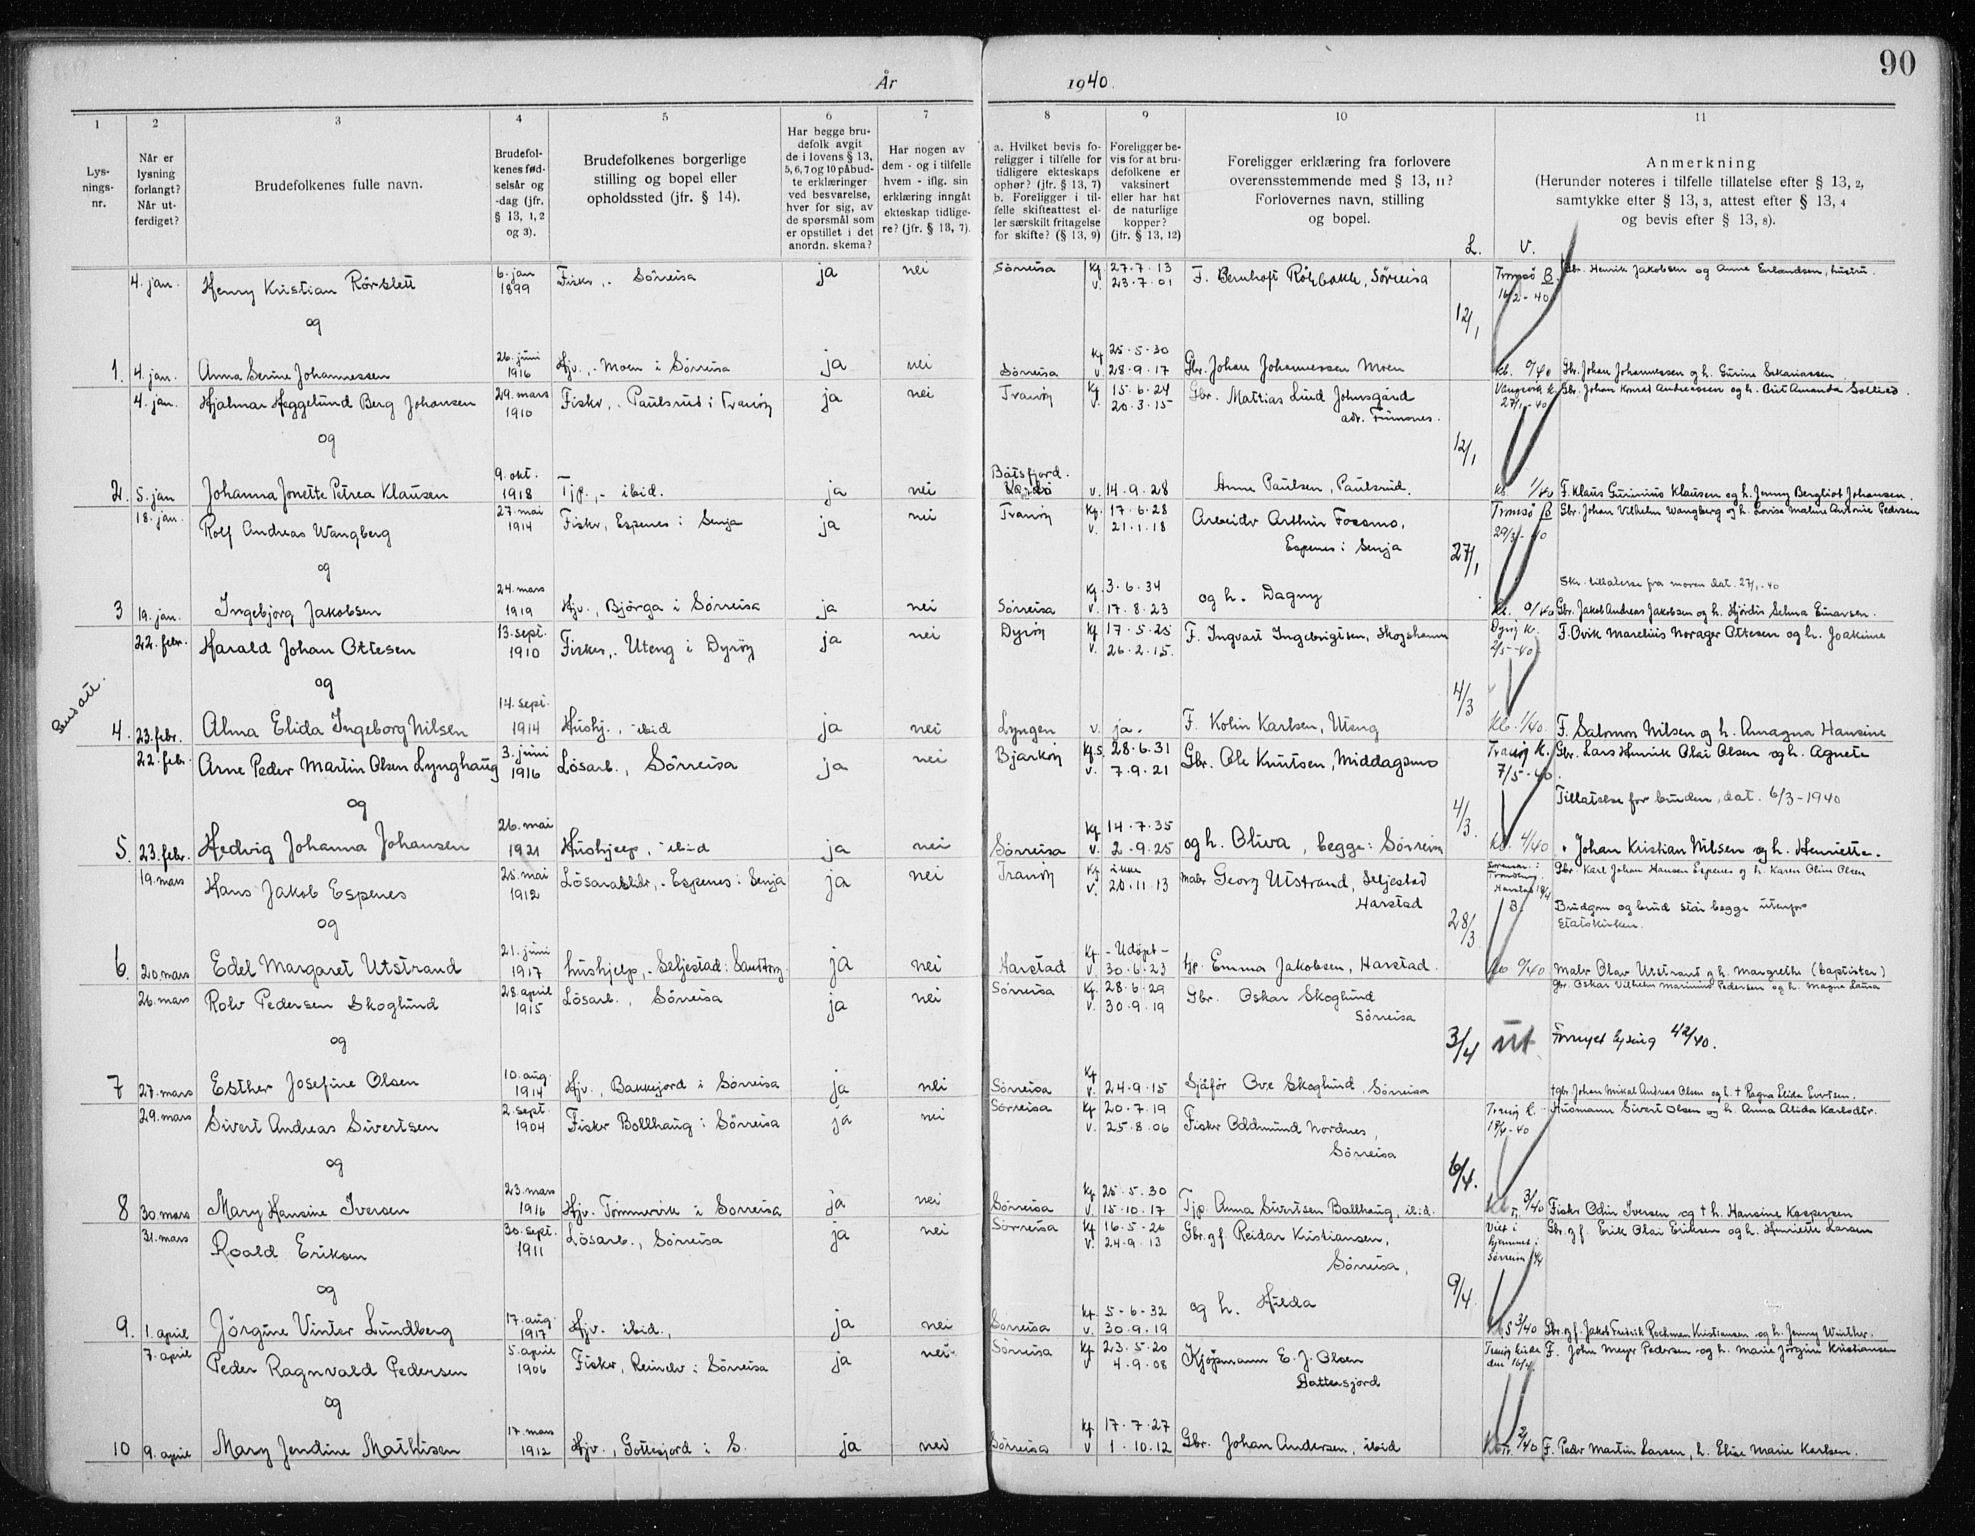 90
År 1940.
1 2 3 4 5 6 7 8 9 10 11
Lys-
nings-
nr.
Når er
lysning
forlangt?
Når ut-
ferdiget?
Brudefolkenes fulle navn.
Brudefol-
kenes fød-
selsår og
-dag (jfr.
§ 13, 1, 2
og 3).
Brudefolkenes borgerlige
stilling og bopel eller
opholdssted (jfr. § 14).
Har begge bru-
defolk avgit
de i lovens § 13,
5, 6, 7 og 10 påbud-
te erklæringer
ved besvarelse,
hver for sig, av
de spørsmål som
er opstillet i det
anordn. skema?
Har nogen av
dem - og i tilfelle
hvem - iflg. sin
erklæring inngått
ekteskap tidlige-
re? (jfr. § 13, 7).
a. Hvilket bevis fo-
religger i tilfelle for
tidligere ekteskaps
ophør? (jfr. § 13, 7)
b. Foreligger i til-
felle skifteattest el-
ler særskilt fritagelse
for skifte? (§ 13, 9)
Foreligger be-
vis for at bru-
defolkene er
vaksinert
eller har hat
de naturlige
kopper?
(jfr. § 13, 12)
Foreligger erklæring fra forlovere
overensstemmende med § 13, 11?
Forlovernes navn, stilling
og bopel.
L. V.
Anmerkning
(Herunder noteres i tilfelle tillatelse efter § 13, 2,
samtykke efter § 13, 3, attest efter § 13, 4
og bevis efter § 13, 8).
4. jan. Henry Kristian Rörslett 6. jan 1899 Fiskr,. Sörreisa ja nei Sörreisa Kf 27.7.13 v. 23.7.01 F. Bernhoft Rörbakk, Sörreisa Tromsö B 16/2-40 Gbr. Henrik Jakobsen og Anne Erlandsen, hustru.
og 12/1
1. 4. jan. Anna Serine Johannessen 26. juni 1916 Hjv.,. Moen i Sörreisa ja nei Sörreisa Kf 25.5.30 v. 28.9.17 Gbr. Johan Johannessen Moen Gbr. Johan Johannessen og h. Gurine Sakariassen
4. jan. Hjalmar Heggelund Berg Johansen 29. mars 1910 Fiskr,. Paulsrud i Tranöy ja nei Tranöy Kf 15.6.24 v. 20.3.15 Gbr. Mattias Lind Johnsgård 27/1-40 Gbr. Johan Konrad Andreassen og h. Birt Amanda Sollied.
adr. Finnsnes.
og 12/1
2. 5. jan Johanna Jonette Petrea Klausen 9. okt. 1918 Tjp.,- ibid. ja nei Båtsfjord. v. 14.9.28 Anne Paulsen, Paulsrud. 1/40 F. Klaus Guninius Klausen og h. Jenny Bergliot Johansen.
18. jan. Rolf Andreas Wangberg 27. mai 1914 Fiskr, Espenes i Senja ja nei Tranöy Kf. 17.6.28 v. 21.1.18 Arbeidr Arthur Fossmo, Tromsö B Gbr. Johan Vilhelm Wangberg og h. Lovise Maline Antonie Pedersen
Espenes i Senja
og 27/1
Skr. tillatelse fra moren dat. 27/1-40
3 19. jan. Ingebjorg Jakobsen 24. mars 1919 Hjv., Björga i Sörreisa ja nei Sörreisa Kf. 3.6.34 v. 17.8.23 og h. Dagny Gbr. Jakob Andreas Jakobsen og h. Hjördis Selma Einarsen.
22. febr. Harald Johan Ottesen 13. sept. 1910 Fisker,. Uteng i Dyröy ja nei Dyröy Kf 17.5.25 v. 26.2.15. F. Ingvart Ingebrigtsen, Skogshamn Dyröy K. 2/5-40 F. Ovik Marelius Norager Ottesen og h. Joakine
og 4/3
4. 23. febr. Alma Elida Ingeborg Nilsen 14. sept. 1914 Hushj., ibid ja nei Lyngen v. ja. F. Kolin Karlsen, Uteng 1/40. F. Salomon Nilsen og h. Annagna Hansine
22. febr. Arne Peder Martin Olsen Lynghaug 3. juni 1916 Lösarb., Sörreisa ja nei Bjarköy Kf.s. 28.6.31 v. 7.9.21 Gbr. Ole Knutsen, Middagsmo Tranöy K. 7/5-40. Gbr. Lars Henrik Olai Olsen og h. Agnete
og 4/3. Tillatelse for bruden, dat. 6/3-1940
5. 23. febr. Hedvig Johanna Johansen 26. mai 1921 Hushjelp, ibid ja nei Sörreisa Kf 14.7.35 v. 2.9.25 og h. Oliva, begge: Sörreisa 4/40 Johan Kristian Nilsen og h. Henriette.
19. mars Hans Jakob Espenes 25. mai 1912 Lösarbeidr,. Espenes i Senja ja nei Tranöy Kf ikke v. 20.11.13 Malr Georg Utstrand, Seljestad Gbr. Karl Johan Hansen Espenes og h. Karen Olin Olsen
Harstad
og 28/3. Brudgom og brud står begge utenfor
statskirken.
6. 20. mars Edel Margaret Utstrand 21. juni 1917 hushjelp,- Seljestad: Sandtorg. ja nei Harstad Kf - Udöpt - v. 30.6.23 tjp. Emma Jakobsen, Harstad. Malr Olav Utstrand og h. Margrethe (baptister)
26. mars Rolv Pedersen Skoglund 28. april 1915 Lösarb., Sörreisa ja nei Sörreisa Kf. 28.6.29 v. 30.9.19 Gbr. Oskar Skoglund Gbr. Oskar Vilhelm Marinius Pedersen og h. Magna Laura
Sörreisa
og 3/4 ut Fornyet lysning 42/40.
7 27. mars Esther Josefine Olsen 10. aug. 1914 Hjv. Bakkejord i Sörreisa ja nei Sörreisa Kf v. 24.9.15 Sjåför Ove Skoglund, Sörreisa † gbr Johan Mikal Andreas Olsen og h. † Ragna Elida Evertsen.
29. mars Sivert Andreas Sivertsen 2. sept. 1904 Fiskr Bollhaug i Sörreisa ja nei Sörreisa Kf 20.7.19 v. 25.8.06 Fiskr Oddmund Nordnes, Tranöy K. 18/4-40 Husmann Sivert Olsen og h. Anna Alida Karlsdtr.
Sörreisa
og 6/4.
8 30. mars Mary Hansine Iversen 23. mars 1916 Hjv. Tömmervik i Sörreisa ja nei Sörreisa Kf 25.5.30 v. 15.10.17 Tjp. Anna Sivertsen Ballhaug, ibid. 3/40 Fiskr Odin Iversen og † h. Hansine Kaspersen
31. mars Roald Eriksen 30. sept. 1911 Lösarb., Sörreisa ja nei Sörreisa Kf 16.5.26 v. 24.9.13 Gbr. gf. Reidar Kristiansen, Viet i hjemmet i Sörreisa Gbr. gf. Erik Olai Eriksen og h. Henriette Larsen
Sörreisa,
og 9/4.
9. 1. april Jörgine Vinter Lundberg 17. aug. 1917 Hjv. ibid., ja nei Sörreisa Kf. 5-6-32 v. 30.9.19 og h. Hilda 3/40 Gbr. gf. Jakob Fredrik Rochmen Kristiansen og h. Jenny Winther.
7. april Peder Ragnvald Pedersen 5. april 1906 Fiskr, Reindv i Sörreisa ja nei Sörreisa Kf 23.5.20 v 4.9.08 Kjöpmann E. J. Olsen Tranöy kirke den 16/4. F. John Meyer Pedersen og h. Marie Jörgine Kristiansen
Hattersjord
og
10 9. april Mary Jendine Mathisen 17. mars 1912 Hjv., Gottesjord i S. ja nei Sörreisa Kf 17.7.27 v 1.10.12 Gbr. Johan Andersen, ibid 2/40 F. Pedr Martin Larsen, h. Elise Marie Karlsen.